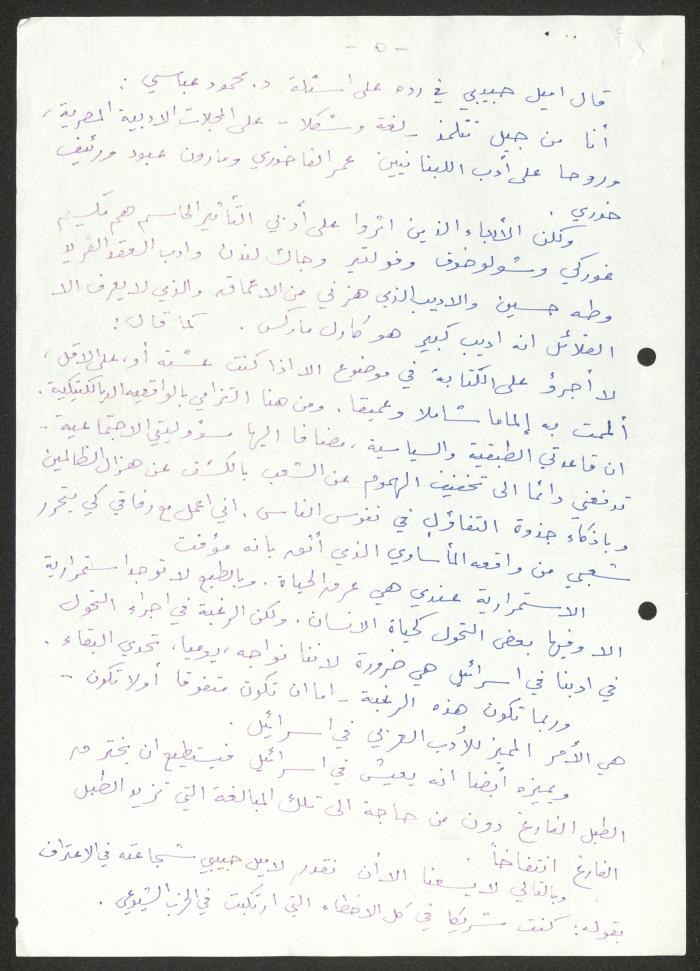 - ٥ -
قال اميل حبيبي في رده على اسئلة د. محمود عباسي :
أنا من جيل تتلمذ - لغة وشكلا - على المجلات الادبية المصرية،
وروحا على أدب اللبنانيين عمر الفاخوري ومارون عبود ورئيف
خوري .
ولكن الأدباء الذين اثروا على أدبي التأثير الحاسم هم مكسيم
غوركي وشولوخوف وفولتير وجاك لندن وادب العقد الفريد
وطه حسين والاديب الذي هزني من الاعماق والذي لا يعرف الا
القلائل انه اديب كبير هو كارل ماركس . كما قال :
لا أجرؤ على الكتابة في موضوع الا اذا كنت عشته أو، على الاقل،
ألممت به إلماما شاملا وعميقا. ومن هنا التزامي بالواقعيه الديالكتيكية.
ان قاعدتي الطبقية والسياسية، مضافا اليها مسؤوليتي الاجتماعية -
تدفعني دائما الى تخفيف الهموم عن الشعب بالكشف عن هزال الظالمين
وباذكاء جذوة التفاؤل في نفوس الناس. اني اعمل مع رفاقي كي يتحرر
شعبي من واقعه المأساوي الذي أثق بانه مؤقت
الاستمرارية عندي هي عرق الحياة. وبالطبع لا توجد استمرارية
الا وفيها بعض التحول كحياة الانسان. ولكن الرغبة في اجراء التحول
في ادبنا في اسرائيل هي ضرورة لاننا نواجه، يوميا، تحدي البقاء .
وربما تكون هذه الرغبة - اما ان تكون متفوقا أو لا تكون -
هي الأمر المميز للأدب العربي في اسرائيل .
ويميزه أيضا انه يعيش في اسرائيل فيستطيع ان يخترق
الطبل الفارغ دون من حاجة الى تلك المبالغة التي تزيد الطبل
الفارغ انتفاخاً
وبالتالي لا يسعنا الا أن نقدر لاميل حبيبي شجاعته في الاعتراف
بقوله: كنت شريكا في كل الاخطاء التي ارتكبت في الحزب الشيوعي .